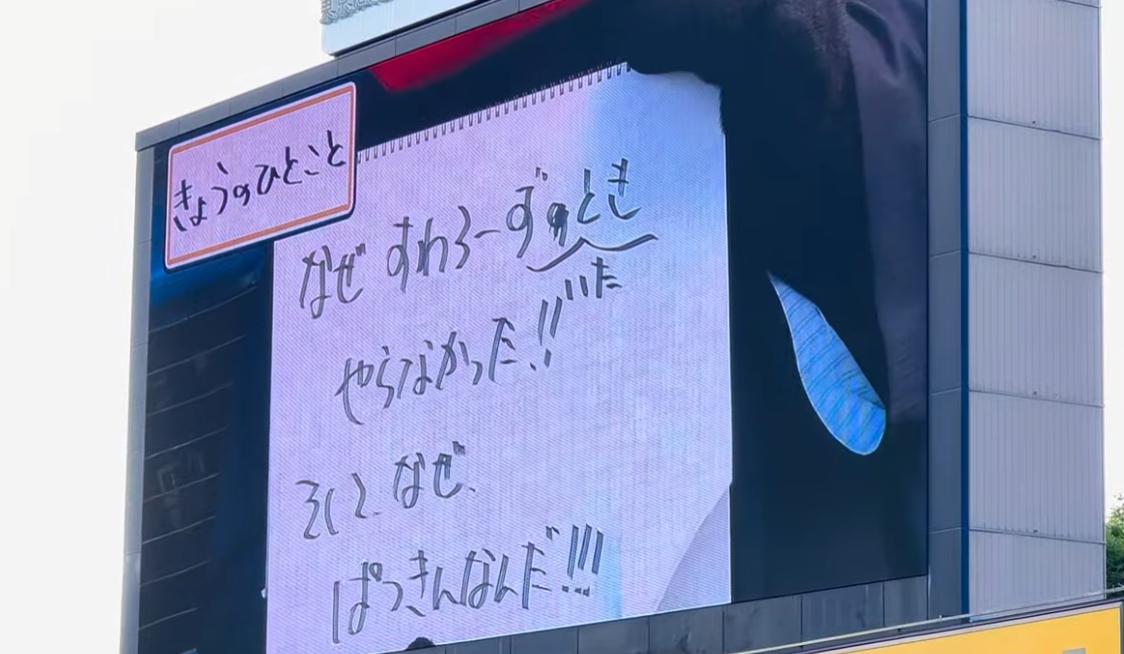 きょうのひとこと
なぜ すわろーずのとき
いた
やらなかった!!
そして、なぜ、
ばっきんなんだ!!!